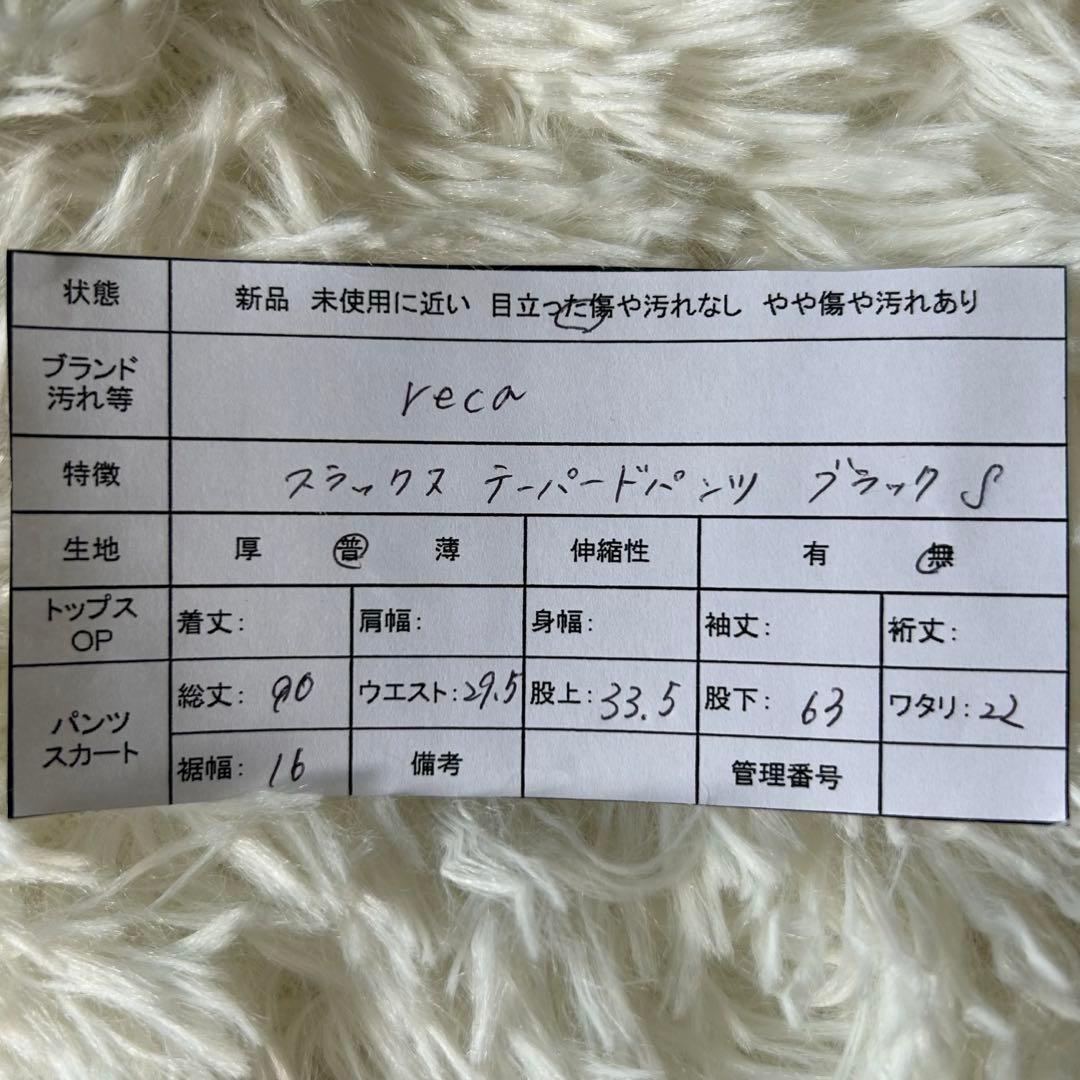 状態 新品 未使用に近い 目立った傷や汚れなし やや傷や汚れあり
ブランド
汚れ等 reca
特徴 スラックス テーパードパンツ ブラック S
生地 厚 普 薄 伸縮性 有 無
トップス
OP 着丈: 肩幅: 身幅: 袖丈: 裄丈:
パンツ
スカート 総丈: 90 ウエスト: 29.5 股上: 33.5 股下: 63 ワタリ: 22
裾幅: 16 備考 管理番号